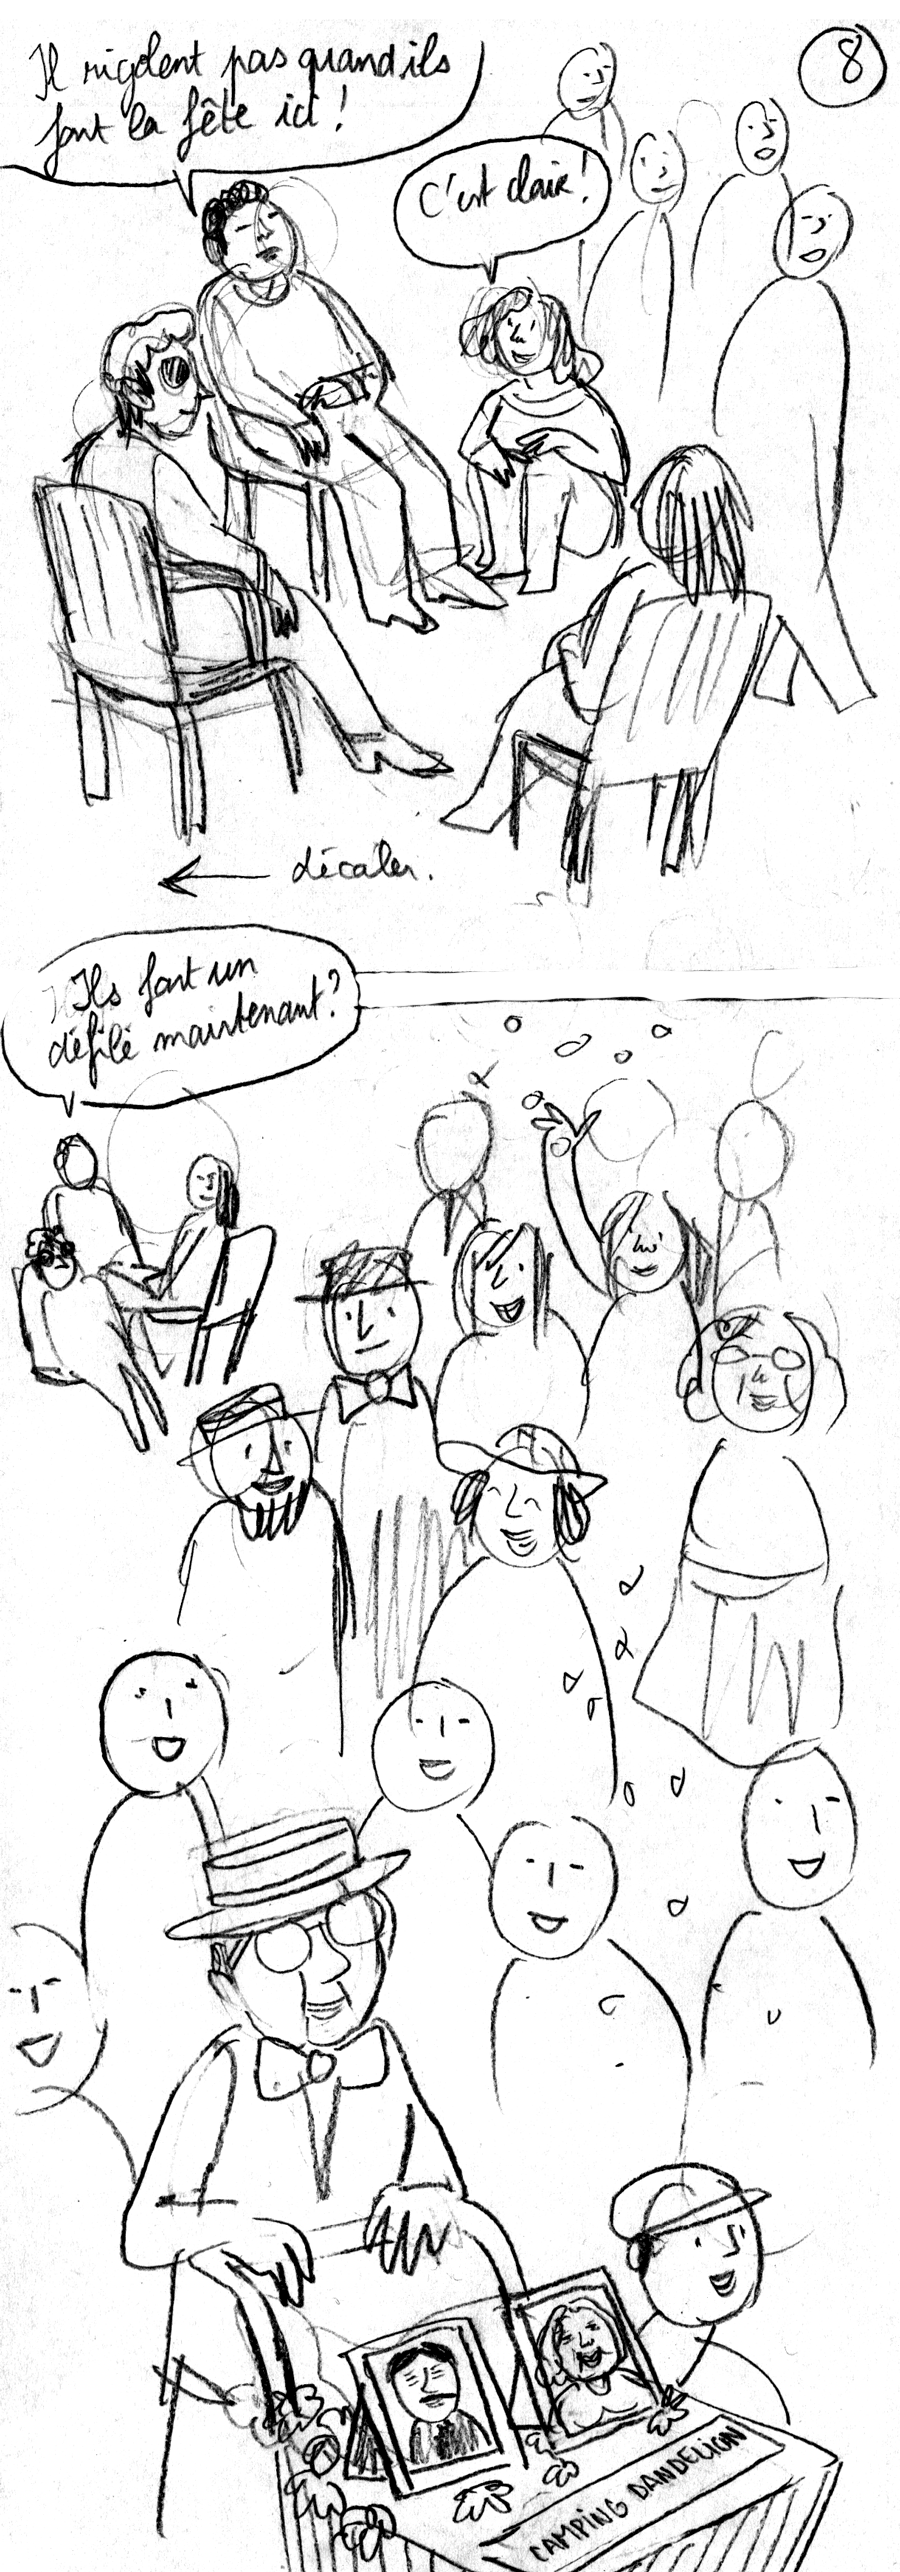 8
Il rigolent pas quand ils
font la fête ici !
C'est clair !
décaler.
Ils font un
défilé maintenant ?
CAMPING DANDELION